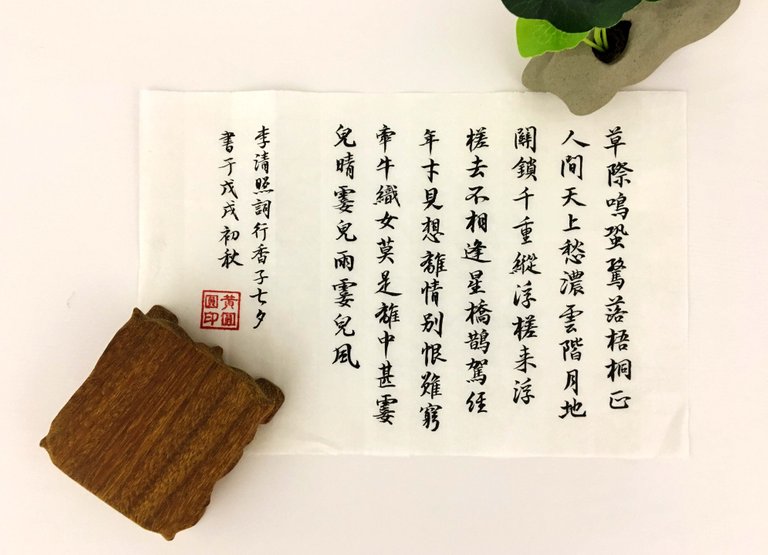 草際鳴蛩驚落梧桐正
人間天上愁濃雲階月地
關鎖千重縱浮槎来浮
槎去不相逢星橋鵲駕經
年才見想離情別恨難窮
牽牛織女莫是離中甚霎
兒晴霎兒雨霎兒風
李清照詞行香子七夕
書于戊戌初秋
黃圓
圓印